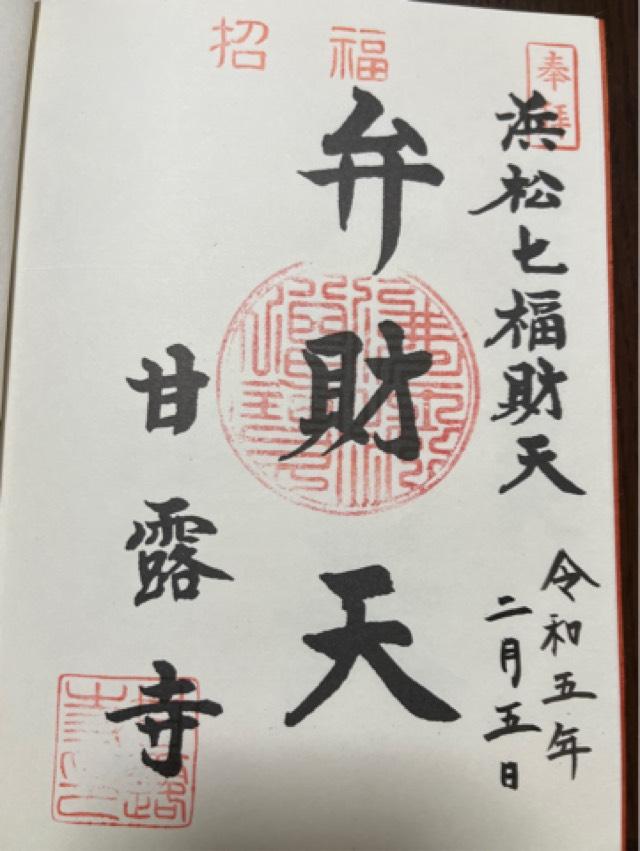 招福
奉拝
浜松七福財天
令和五年
二月五日
弁財天
甘露寺